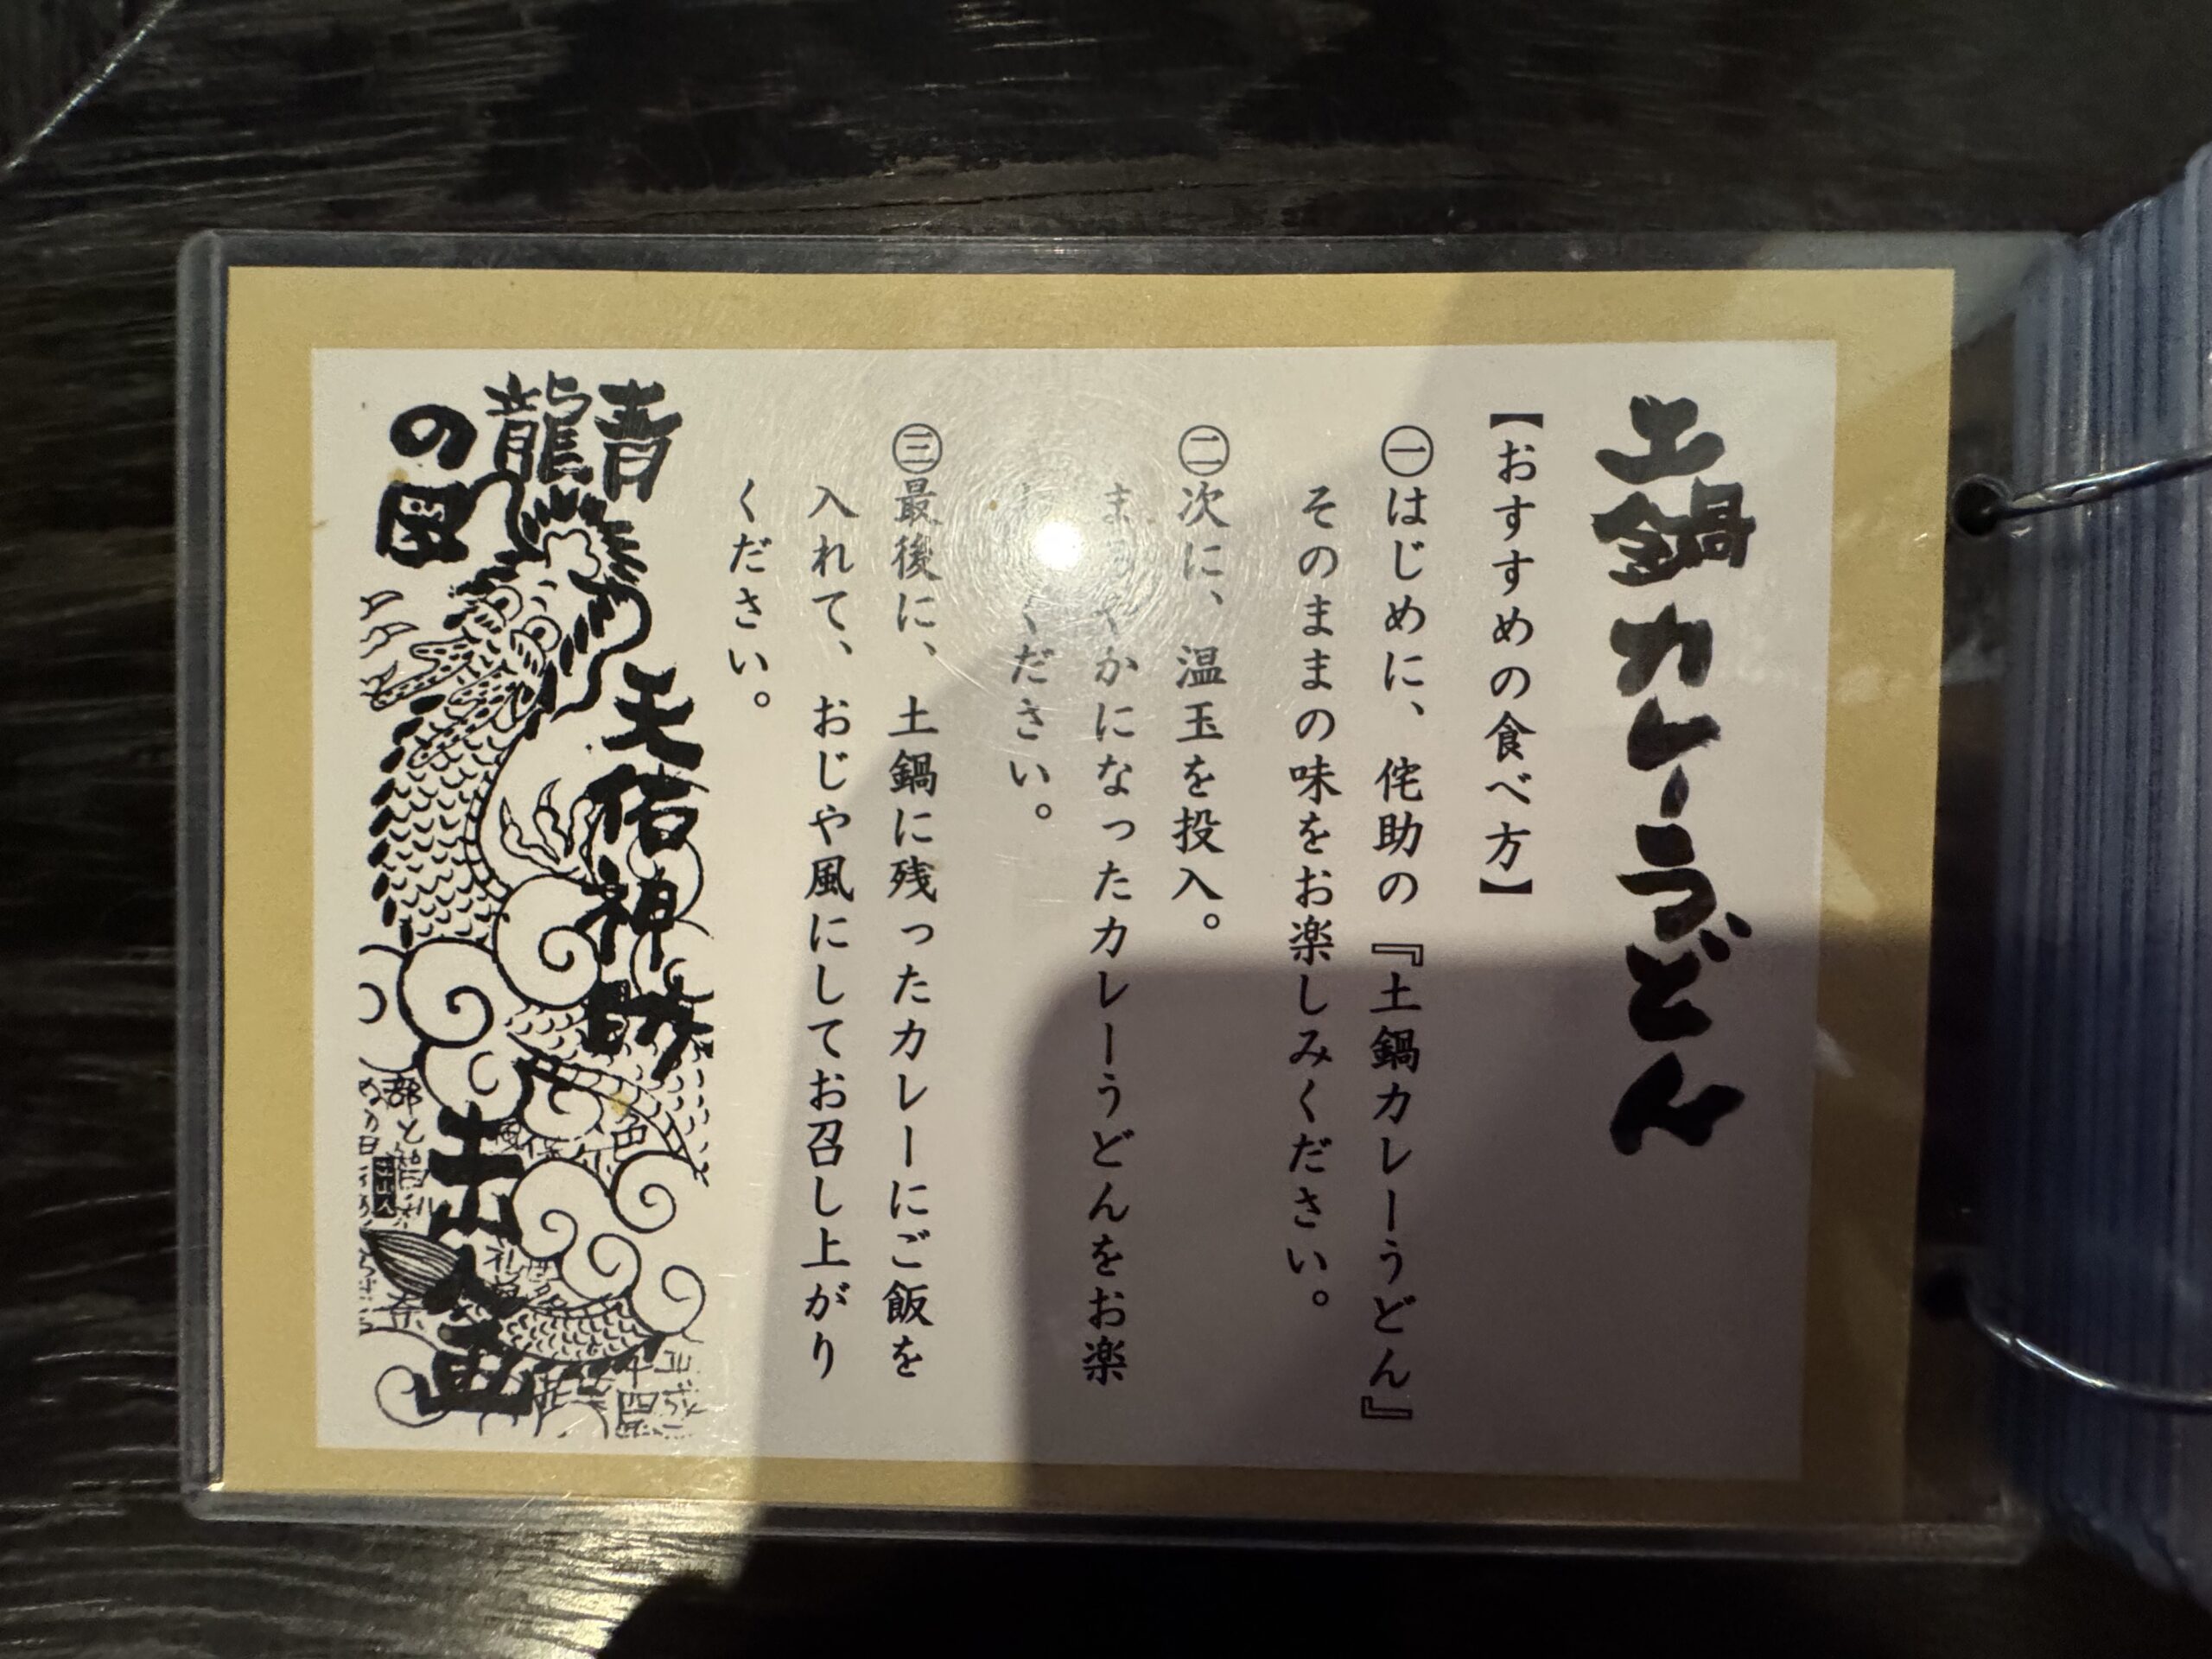 土鍋カレーうどん
【おすすめの食べ方】
㊀はじめに、侘助の『土鍋カレーうどん』
そのままの味をお楽しみください。
㊁次に、温玉を投入。
まろやかになったカレーうどんをお楽
ください。
㊂最後に、土鍋に残ったカレーにご飯を
入れて、おじや風にしてお召し上がり
ください。
青龍の図
天佑神助